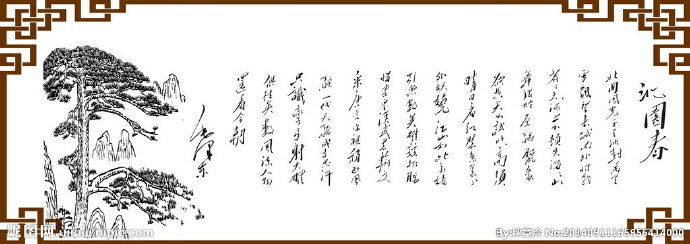 沁園春
北国風光千里冰封万里
雪飘望长城内外惟余
莽莽大河上下顿失滔滔山
舞银蛇原驰蜡象
欲与天公试比高须
晴日看红装素裹分
外妖娆江山如此多娇
引无数英雄竞折腰
惜秦皇汉武略输文
采唐宗宋祖稍逊风
骚一代天骄成吉思汗
只識弯弓射大雕
俱往矣数風流人物
還看今朝
毛泽东
昵图网 nipic.com
By: No:20140911165956414000